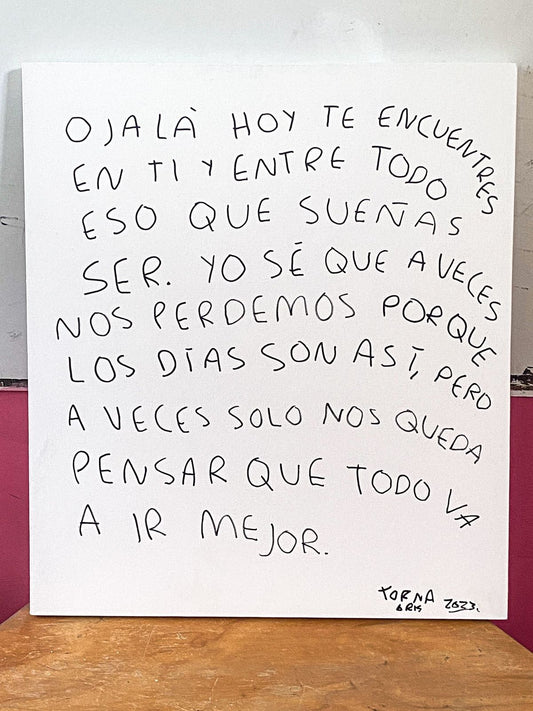 OJALÀ HOY TE ENCUENTRES
EN TI Y ENTRE TODO
ESO QUE SUEÑAS
SER. YO SÉ QUE A VECES
NOS PERDEMOS PORQUE
LOS DÍAS SON ASÍ, PERO
A VECES SOLO NOS QUEDA
PENSAR QUE TODO VA
A IR MEJOR.
TORNA
2023.